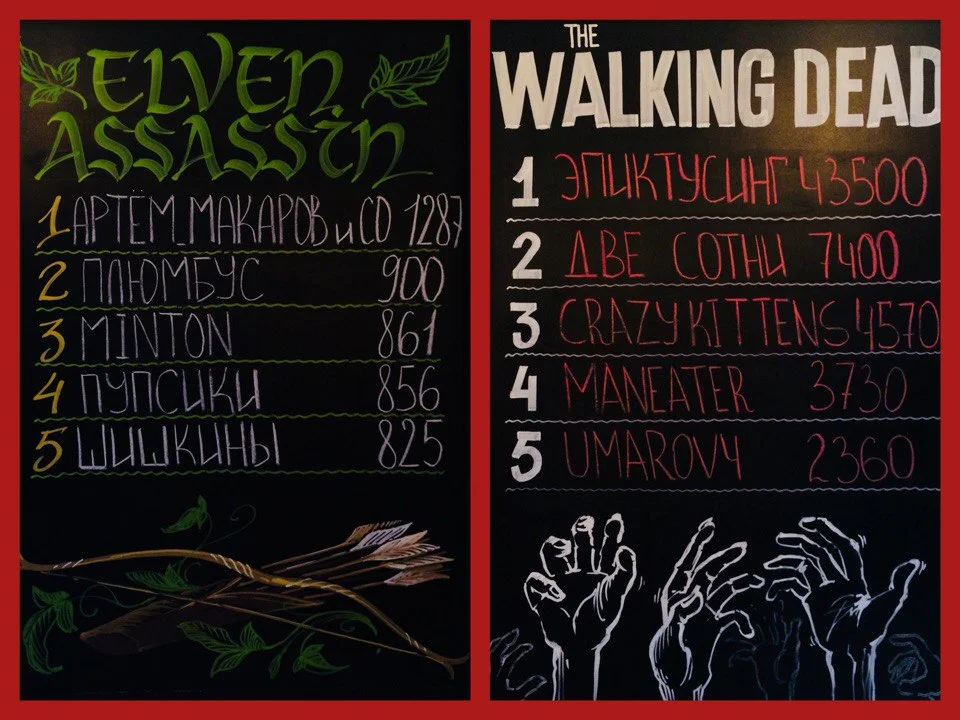 ELVEN
ASSASSIN
1 АРТЁМ_МАКАРОВ и СО 1287
2 ПЛЮМБУС 900
3 MINTON 861
4 ПУПСИКИ 856
5 ШИШКИНЫ 825
THE
WALKING DEAD
1 ЭПИКТУСИНГ 43500
2 ДВЕ СОТНИ 7400
3 CRAZY KITTENS 4570
4 MANEATER 3730
5 UMAROVЧ 2360